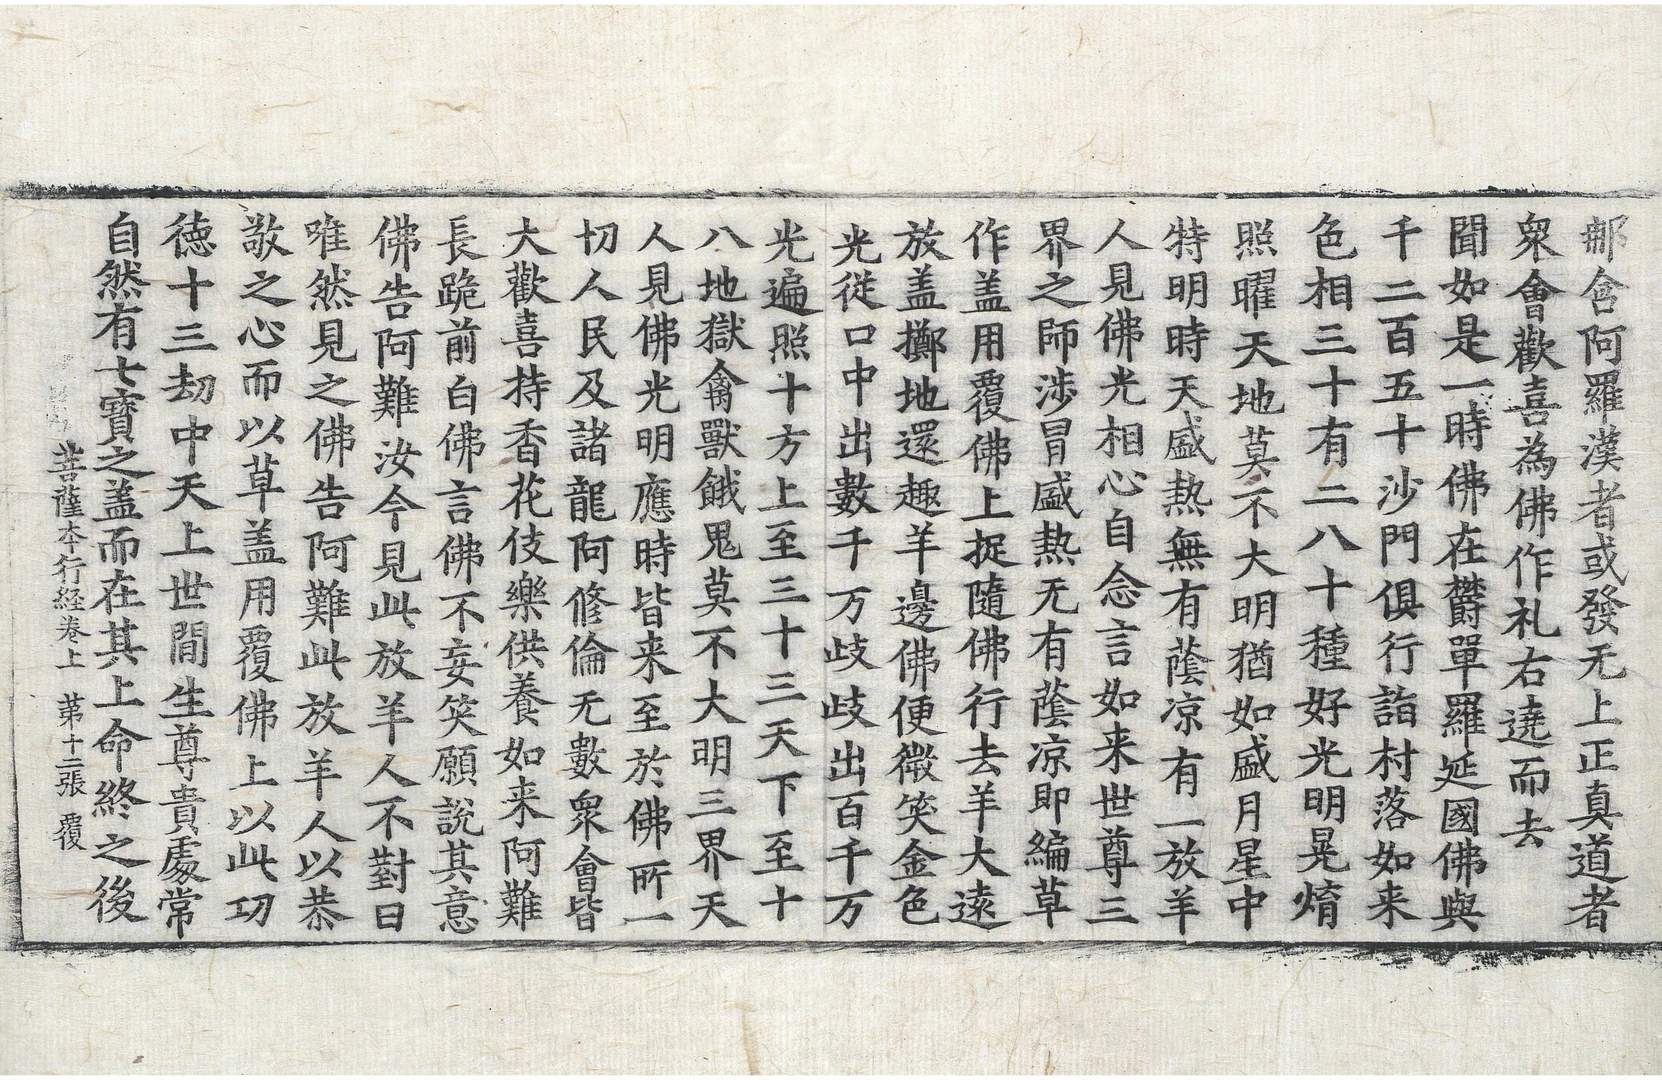 郍含阿羅漢者或發无上正真道者
衆會歡喜為佛作礼右遶而去
聞如是一時佛在欝單羅延國佛與
千二百五十沙門俱行詣村落如来
色相三十有二八十種好光明晃煟
照曜天地莫不大明猶如盛月星中
特明時天盛熱無有蔭凉有一放羊
人見佛光相心自念言如来世尊三
界之師涉冐盛熱无有蔭凉即編草
作盖用覆佛上捉隨佛行去羊大遠
放盖擲地還趣羊邊佛便微笑金色
光從口中出數千万歧歧出百千万
光遍照十方上至三十三天下至十
八地獄禽獸餓鬼莫不大明三界天
人見佛光明應時皆来至於佛所一
切人民及諸龍阿修倫无數衆會皆
大歡喜持香花伎樂供養如来阿難
長跪前白佛言佛不妄笑願說其意
佛告阿難汝今見此放羊人不對曰
唯然見之佛告阿難此放羊人以恭
敬之心而以草盖用覆佛上以此功
德十三劫中天上世間生尊貴處常
自然有七寳之盖而在其上命終之後
菩薩本行経卷上 苐十二張 覆